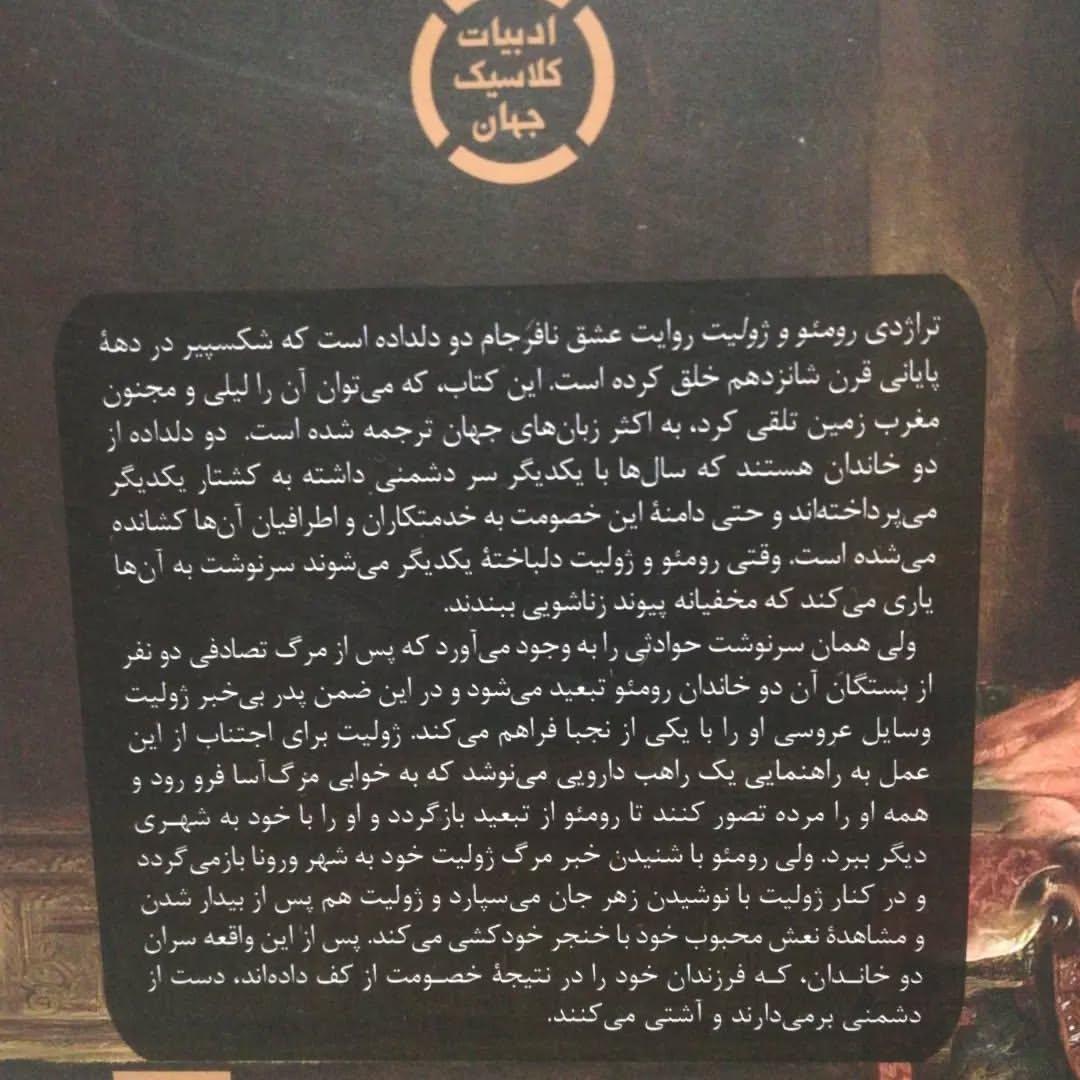 ادبیات
کلاسیک
جهان
تراژدی رومئو و ژولیت روایت عشق نافرجام دو دلداده است که شکسپیر در دههٔ
پایانی قرن شانزدهم خلق کرده است. این کتاب، که می‌توان آن را لیلی و مجنون
مغرب زمین تلقی کرد، به اکثر زبان‌های جهان ترجمه شده است. دو دلداده از
دو خاندان هستند که سال‌ها با یکدیگر سر دشمنی داشته به کشتار یکدیگر
می‌پرداخته‌اند و حتی دامنهٔ این خصومت به خدمتکاران و اطرافیان آن‌ها کشانده
می‌شده است. وقتی رومئو و ژولیت دلباختهٔ یکدیگر می‌شوند سرنوشت به آن‌ها
یاری می‌کند که مخفیانه پیوند زناشویی ببندند.
ولی همان سرنوشت حوادثی را به وجود می‌آورد که پس از مرگ تصادفی دو نفر
از بستگان آن دو خاندان رومئو تبعید می‌شود و در این ضمن پدر بی‌خبر ژولیت
وسایل عروسی او را با یکی از نجبا فراهم می‌کند. ژولیت برای اجتناب از این
عمل به راهنمایی یک راهب دارویی می‌نوشد که به خوابی مرگ‌آسا فرو رود و
همه او را مرده تصور کنند تا رومئو از تبعید بازگردد و او را با خود به شهری
دیگر ببرد. ولی رومئو با شنیدن خبر مرگ ژولیت خود به شهر ورونا بازمی‌گردد
و در کنار ژولیت با نوشیدن زهر جان می‌سپارد و ژولیت هم پس از بیدار شدن
و مشاهدهٔ نعش محبوب خود با خنجر خودکشی می‌کند. پس از این واقعه سران
دو خاندان، که فرزندان خود را در نتیجهٔ خصومت از کف داده‌اند، دست از
دشمنی برمی‌دارند و آشتی می‌کنند.